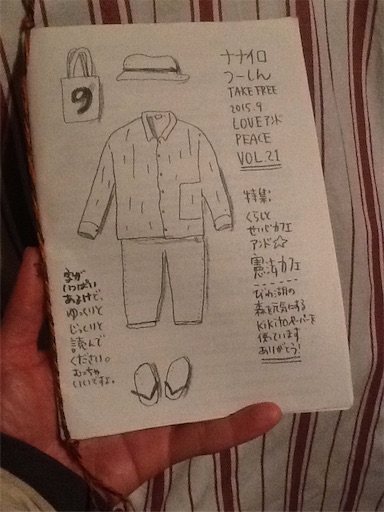 9
ナナイロ
つーしん
TAKE FREE
2015.9
LOVE アンド
PEACE
VOL.21
特集:
くらしと
せいじカフェ
アンド☆
憲法カフェ
びわ湖の
森を元気にする
KiKiToペーパーを
使っています
ありがとう!
字が
いっぱい
あるけど、
ゆっくりと
じっくりと
読んで
ください。
むっちゃ
いいですよ。